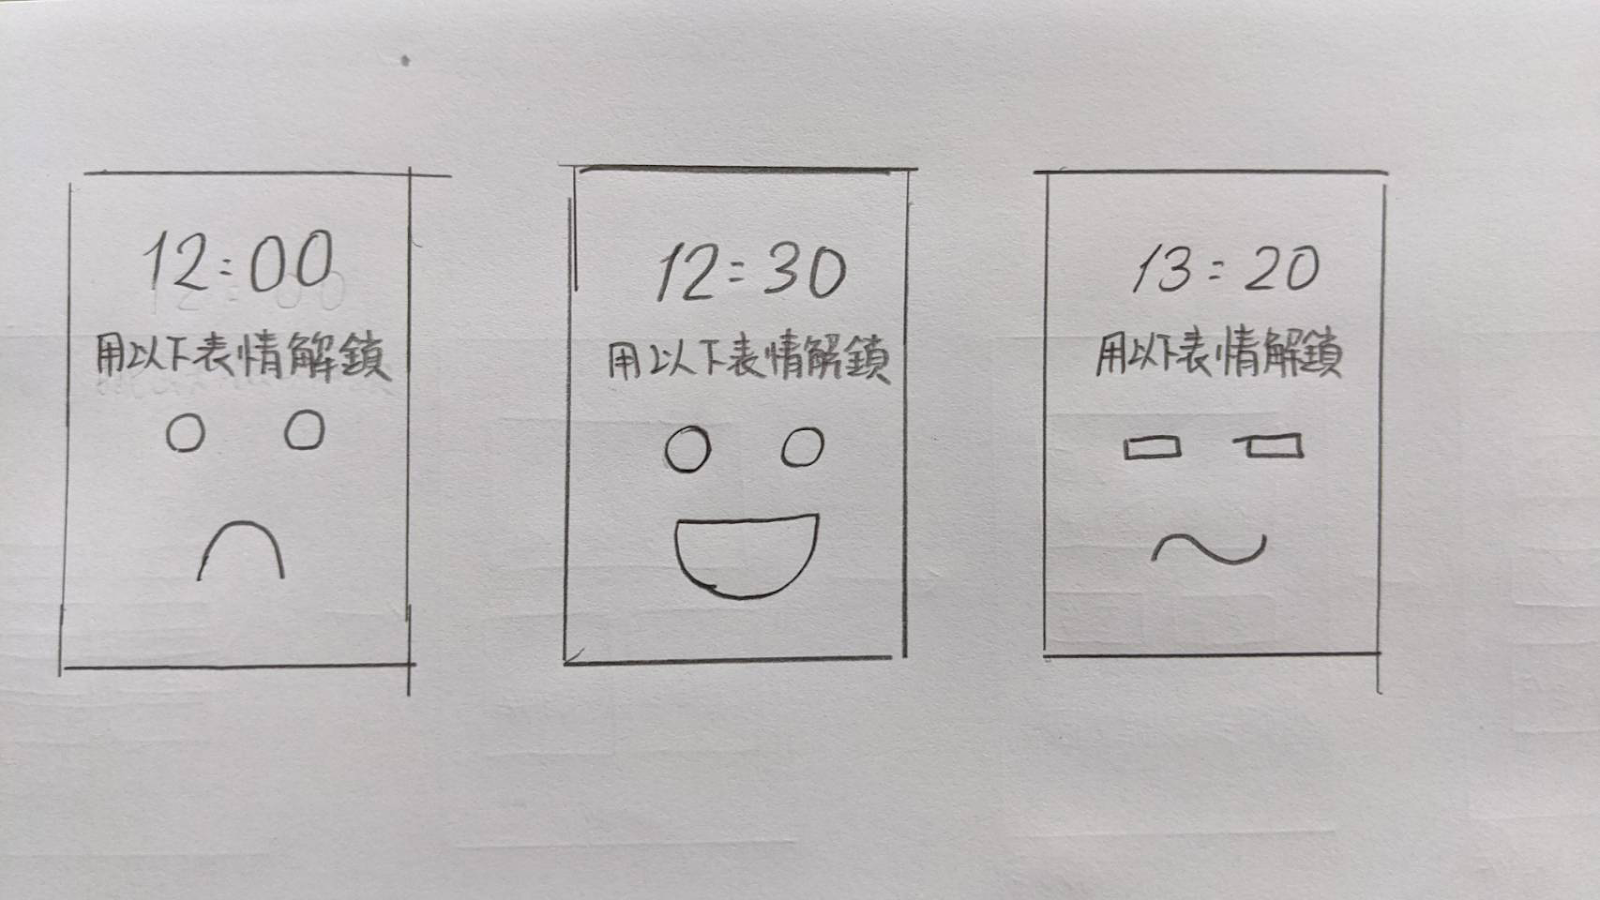 12:00
用以下表情解鎖
12:30
用以下表情解鎖
13:20
用以下表情解鎖